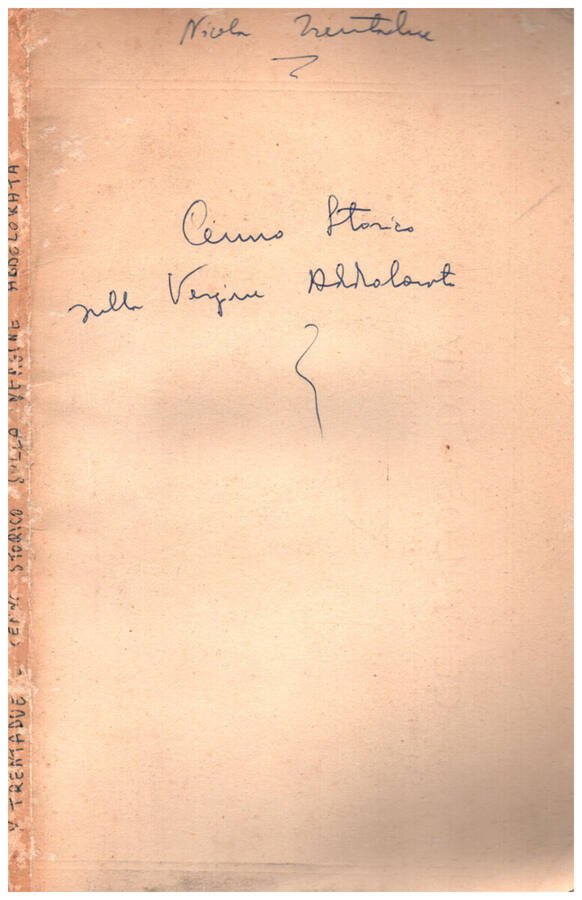 Nicola Trentadue
Cenno Storico
sulla Vergine Addolorata
TRENTADUE - CENNO STORICO SULLA VERGINE ADDOLORATA